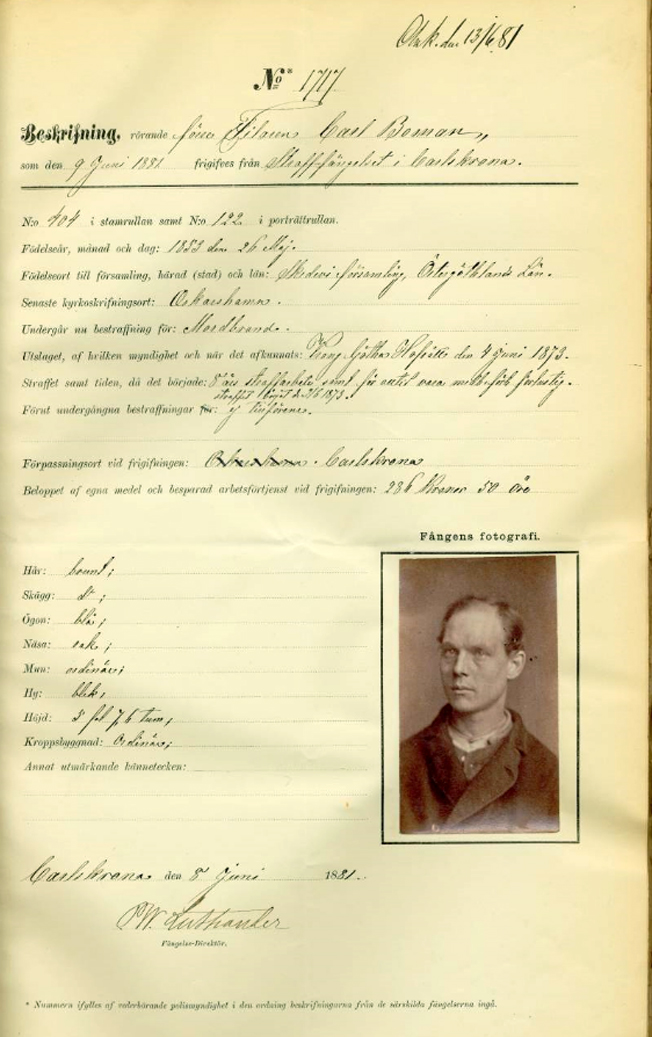 den 13/6 81
No 1717
Beskrifning, rörande förre Filaren Carl Boman
som den 9 Juni 1881 frigifves från Straffängelset i Carlskrona.
N:o 404 i stamrullan samt N:o 122 i porträttrullan.
Födelseår, månad och dag: 1853 den 26 Maj.
Födelseort till församling, härad (stad) och län: Skedevi församling, Östergöthlands Län.
Senaste kyrkoskrifningsort: Oskarshamn.
Undergår nu bestraffning för: Mordbrand.
Utslaget, af hvilken myndighet och när det afkunnats: Kongl. Götha Hofrätt den 4 juni 1873.
Straffet samt tiden, då det började: 8 års straffarbete samt för alltid vara medb. förb. förlustig.
straffet börjat d.
Förut undergångna bestraffningar för: ej
Förpassningsort vid frigifningen: Oskarshamn. Carlskrona
Beloppet af egna medel och besparad arbetsförtjenst vid frigifningen: 286 Kronor 50 öre
Fångens fotografi.
Hår: brunt;
Skägg: d:o;
Ögon: blå;
Näsa: rak;
Mun: ordinär;
Hy: blek;
Höjd: 5 fot 7,6 tum;
Kroppsbyggnad: Ordinär;
Annat utmärkande kännetecken:
Carlskrona den 8 Juni 1881.
Fängelse-Direktör.
* Nummern ifylles af vederbörande polismyndighet i den ordning beskrifningarna från de särskilda fängelserna ingå.